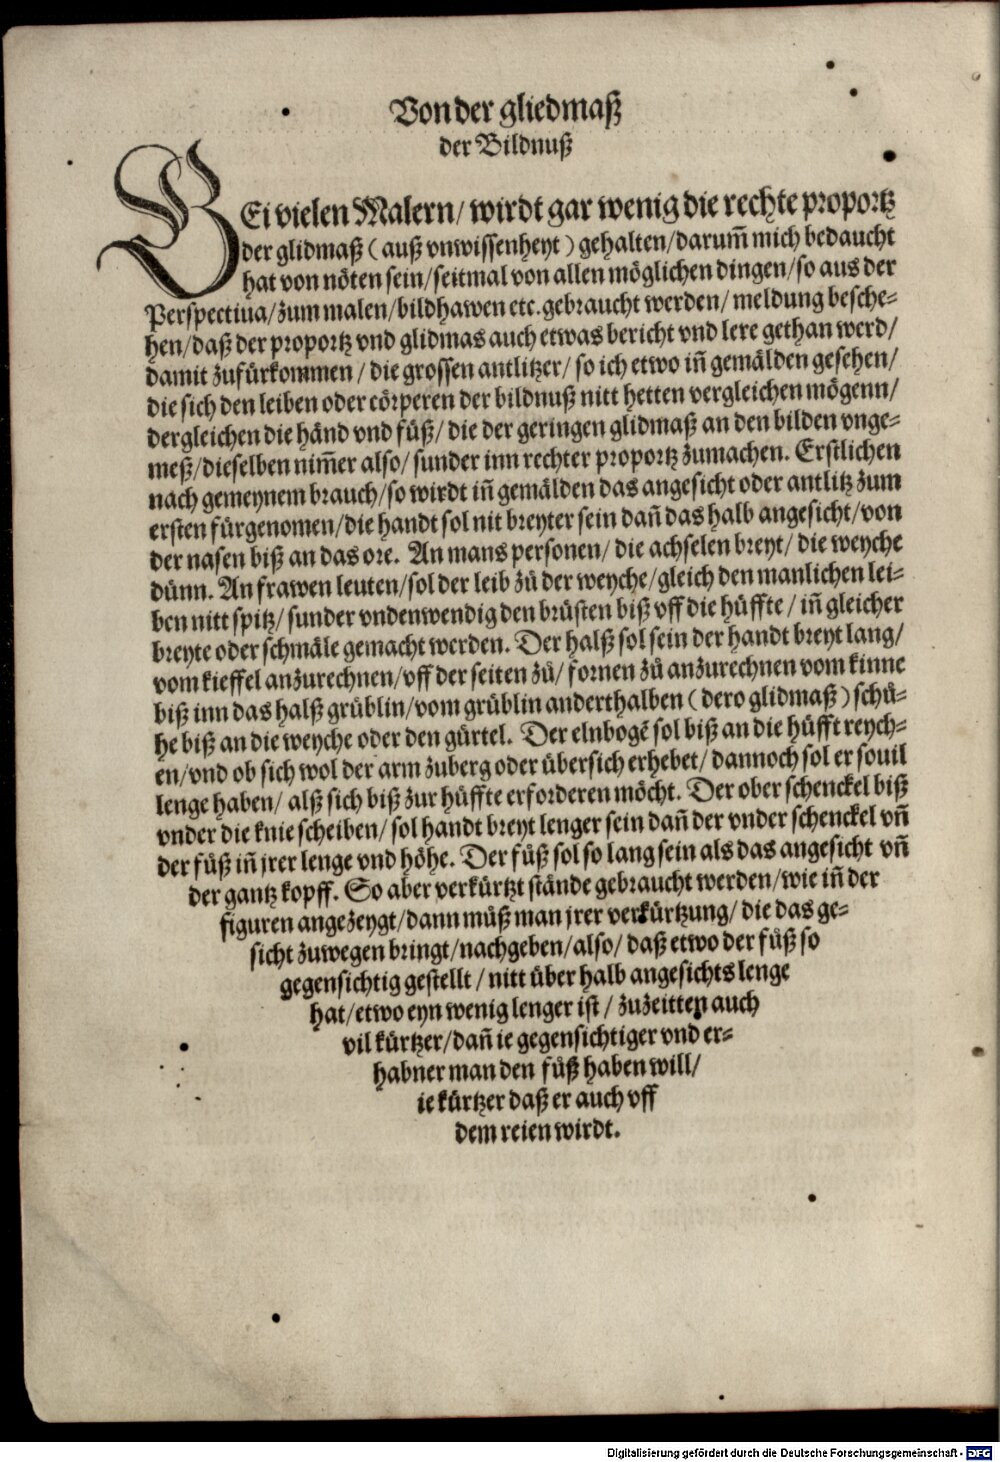 Von der gliedmaß
der Bildnuß
BEi vielen Malern/ wirdt gar wenig die rechte proportz
der glidmaß (auß vnwissenheyt) gehalten/darum̃ mich bedaucht
hat von nöten sein/seitmal von allen möglichen dingen/so aus der
Perspectiua/zum malen/bildhawen etc. gebraucht werden/ meldung besche-
hen/daß der proportz vnd glidmas auch etwas bericht vnd lere gethan werd/
damit zufürkommen/ die grossen antlitzer/ so ich etwo in̄ gemälden gesehen/
die sich den leiben oder cörperen der bildnuß nitt hetten vergleichen mögenn/
dergleichen die händ vnd füß/ die der geringen glidmaß an den bilden vnge-
meß/dieselben nim̃er also/ sunder inn rechter proportz zumachen. Erstlichen
nach gemeynem brauch/so wirdt in̄ gemälden das angesicht oder antlitz zum
ersten fürgenomen/die handt sol nit breyter sein dan̄ das halb angesicht/von
der nasen biß an das ore. An mans personen/ die achselen breyt/ die weyche
dünn. An frawen leuten/sol der leib zů der weyche/gleich den manlichen lei-
ben nitt spitz/ sunder vndenwendig den brüsten biß vff die hüffte/ in̄ gleicher
breyte oder schmäle gemacht werden. Der halß sol sein der handt breyt lang/
vom kieffel anzurechnen/vff der seiten zů/ fornen zů anzurechnen vom kinne
biß inn das halß grüblin/vom grüblin anderthalben (dero glidmaß) schů-
he biß an die weyche oder den gürtel. Der elnbogē sol biß an die hüfft reych-
en/vnd ob sich wol der arm zuberg oder übersich erhebet/ dannoch sol er souil
lenge haben/ alß sich biß zur hüffte erforderen möcht. Der ober schenckel biß
vnder die knie scheiben/ sol handt breyt lenger sein dan̄ der vnder schenckel vn̄
der füß in̄ jrer lenge vnd höhe. Der fůß sol so lang sein als das angesicht vn̄
der gantz kopff. So aber verkürtzt stände gebraucht werden/wie in̄ der
figuren angezeygt/dann můß man jrer verkürtzung/ die das ge-
sicht zuwegen bringt/nachgeben/also/ daß etwo der fůß so
gegensichtig gestellt/ nitt über halb angesichts lenge
hat/etwo eyn wenig lenger ist/ zuzeitten auch
vil kürtzer/dan̄ ie gegensichtiger vnd er-
habner man den fůß haben will/
ie kürtzer daß er auch vff
dem reien wirdt.
Digitalisierung gefördert durch die Deutsche Forschungsgemeinschaft - DFG